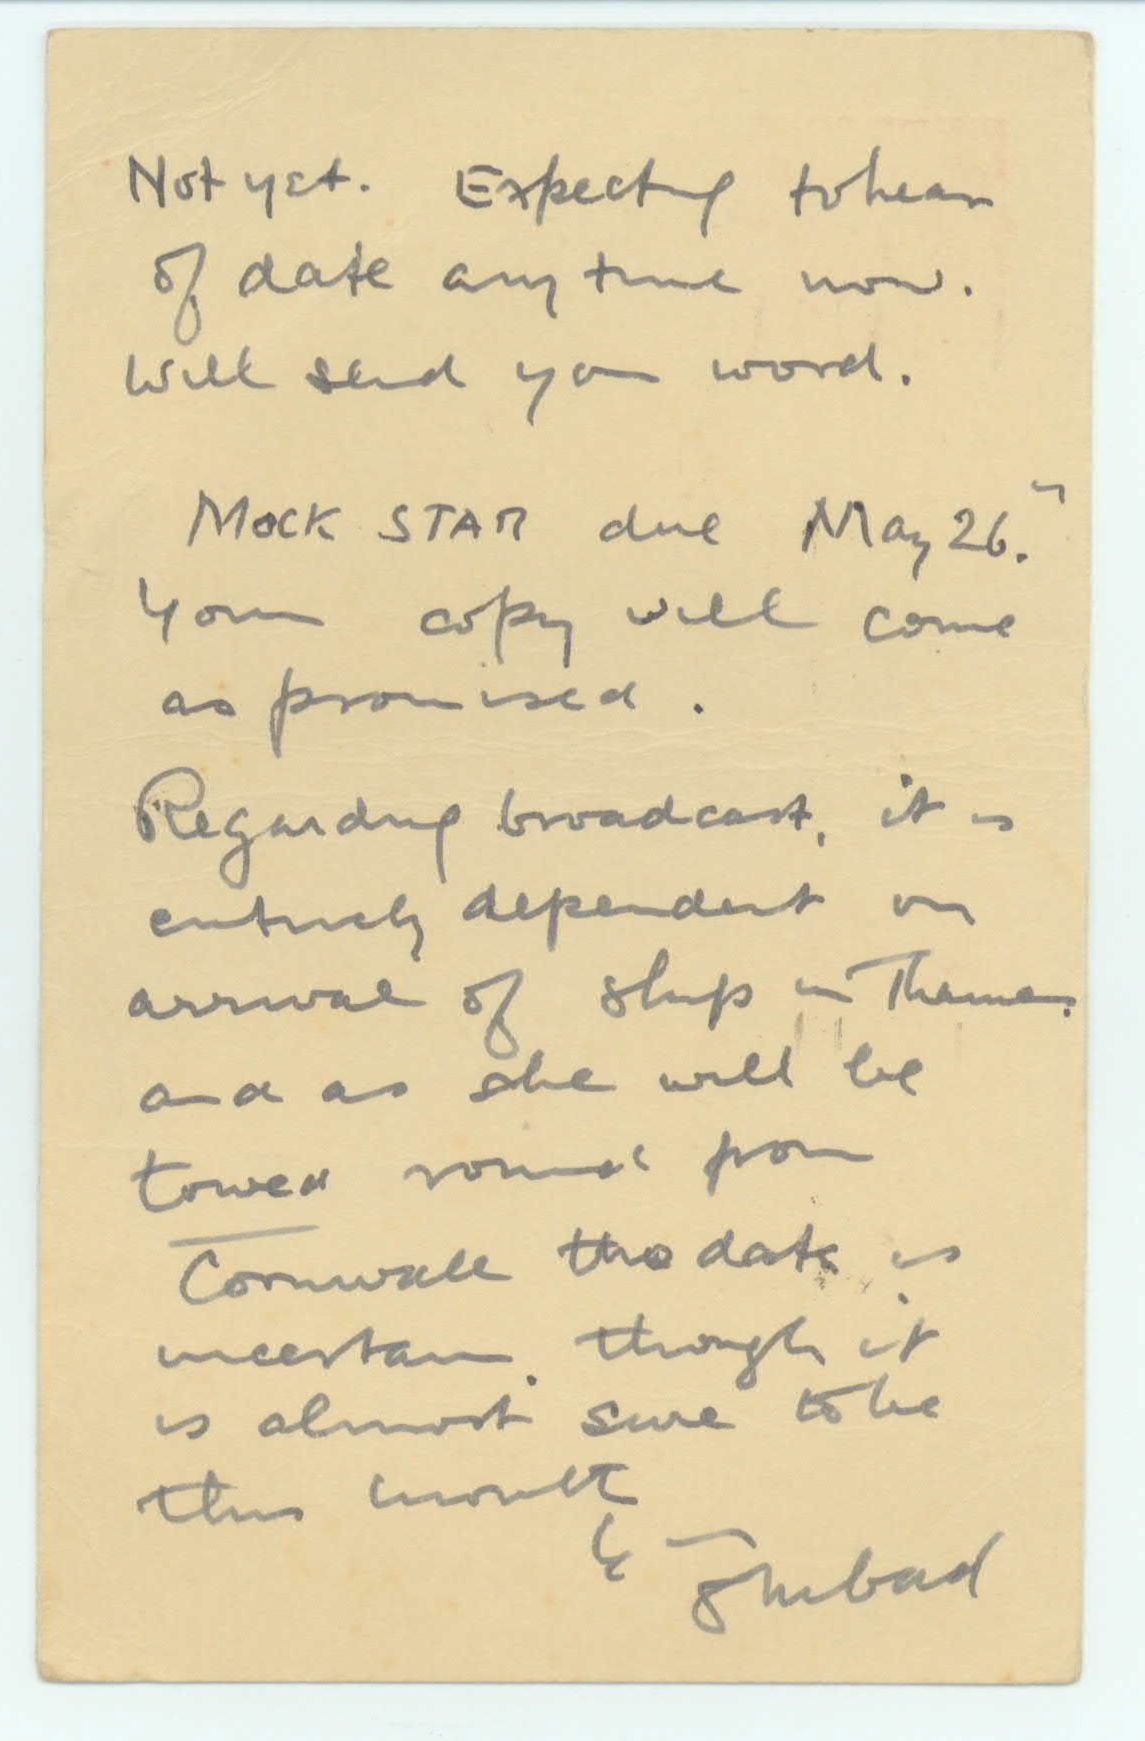 Not yet. Expecting to hear
of date any time now.
Will send you word.
MOCK STAR due May 26.
Your copy will come
as promised.
Regarding broadcast, it is
entirely dependent on
arrival of ship in Thames.
and as she will be
towed round from
Cornwall the date is
uncertain, though it
is almost sure to be
this month